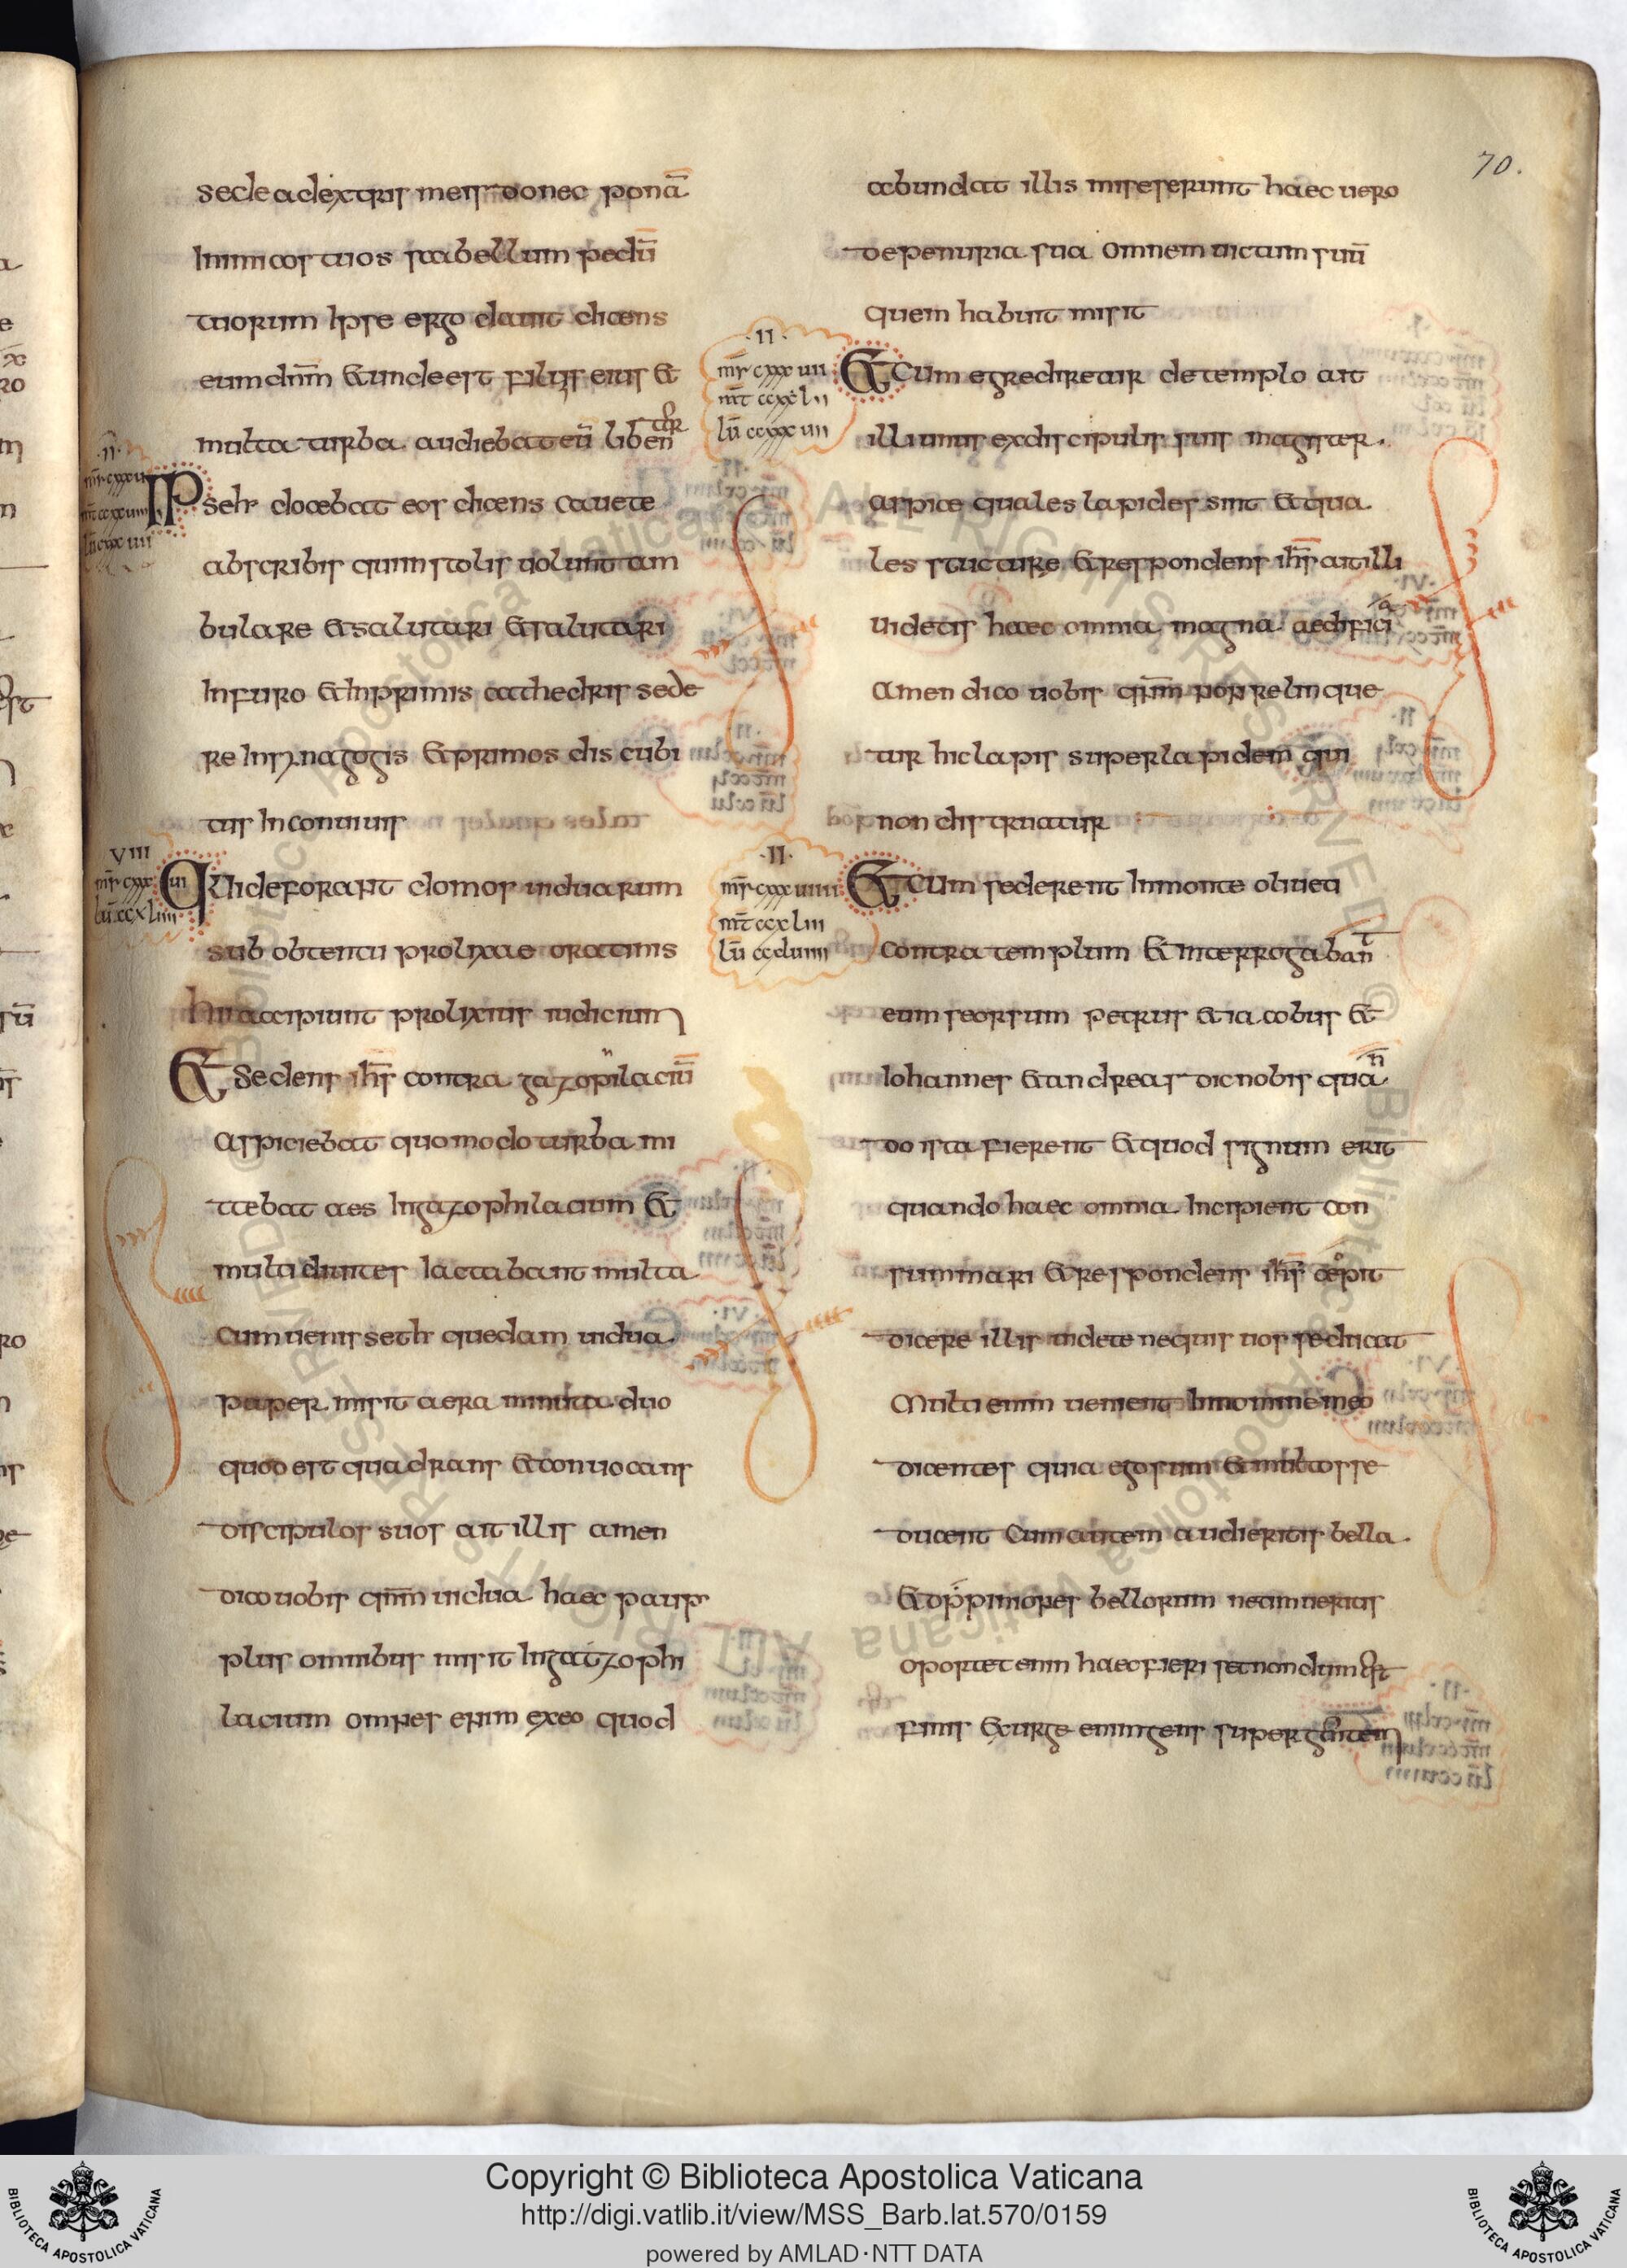 70.
sede adextris meis donec ponā
Inimicos tuos scabellum pedū
tuorum Ipse ergo dauit dicens
eum dn̄m & unde est filius eius &
multa turba audiebat eū liben
ter
·II·
Ipse ihs docebat eos dicens cauete
abscribis qui in stolis uolunt am
bulare & salutari & salutari
In furo & In primis cathedris sede
re In synagogis & primos dis cubi
tus In conuiuiis
VIII
Qui deforant domos uiduarum
sub obtentu prolixae orationis
hii accipiunt prolixius iudicium
& Sedens ih̄s contra gazopilaciū
Aspiciebat quomodo turba mi
ttebat aes In gazophilacium &
multi diuites Iactabant multa
Cum uenisseth quedam uidua
pauper misit aera minuta duo
quod est quadrans & conuocans
discipulos suos ait illis amen
dico uobis qnm̄ uidua haec paup
plus omnibus misit In gatzophi
lacium omnes enim exeo quod
abundat illis miserunt haec uero
de penuria sua omnem uictum suū
quem habuit misit
·II·
mr̄ cxxxuii
mt̄ ccxlii
lū ccxxxuii
& Cum egrederetur de templo ait
illi unus ex discipulis suis magister.
aspice quales lapides sint & qua
les stucture & respondens ih̄s ait illi
uidetis haec omnia magna aedifici
a
Amen dico uobis qnm̄ non relinque
tur hic lapis super lapidem qui
non distruatur
·II·
mr̄ cxxxuiiii
mt̄ ccxliii
lū ccluiiii
& Cum sederent In monte oliueti
contra templum & interrogaban
t
eum seorsum petrus & iacobus &
Iohannes & andreas dic nobis qua
n
do ista fierent & quod signum erit
quando haec omnia Incipient con
summari & respondens ih̄s coepit
dicere illis uidete nequis uos seducat
Multi enim uenient In nomine meo
dicentes quia ego sum & multos se
ducent Cum autem audieritis bella
& oppiniones bellorum ne timueritis
oportet enim haec fieri set nondum est
finis & surget enim gens super gentem
Copyright © Biblioteca Apostolica Vaticana
http://digi.vatlib.it/view/MSS_Barb.lat.570/0159
powered by AMLAD·NTT DATA
BIBLIOTECA APOSTOLICA VATICANA
BIBLIOTECA APOSTOLICA VATICANA